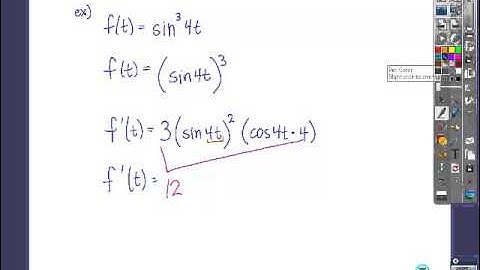 ex) f(t) = sin³4t
f(t) = (sin4t)³
f'(t) = 3(sin4t)² (cos4t·4)
f'(t) = 12
Pen Color